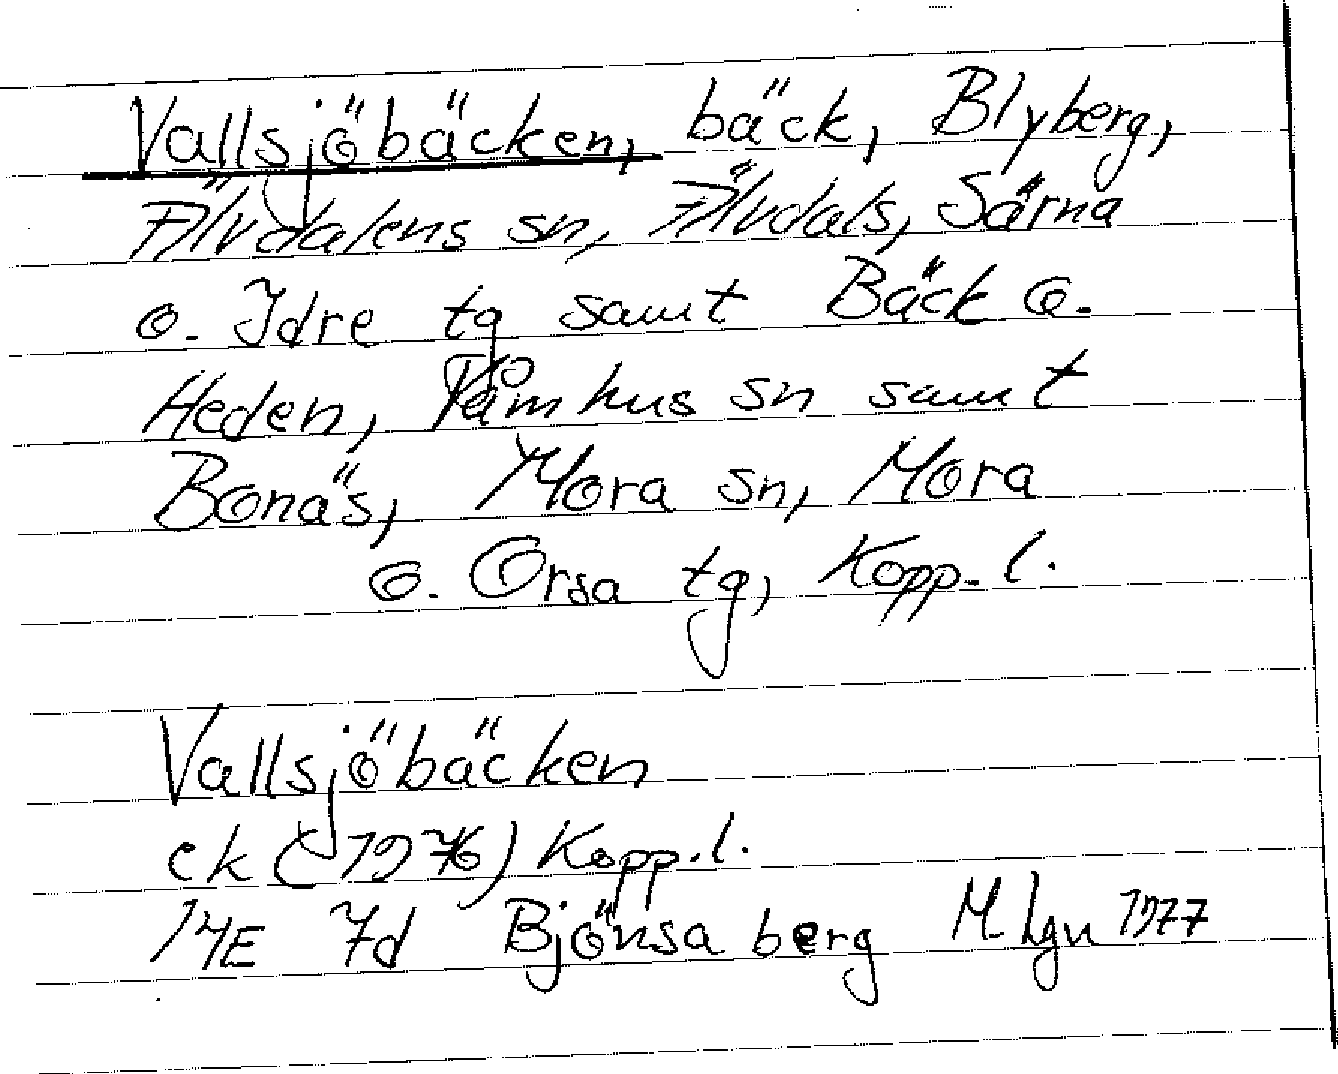 Vallsjöbäcken, bäck, Blyberg,
Älvdalens sn, Älvdals, Särna
o. Idre tg samt Bäck o.
Heden, Våmhus sn samt
Bonäs, Mora sn, Mora
o. Orsa tg, Kopp. l.
Vallsjöbäcken
ek (1976) Kopp. l.
14E 7d Björnsaberg M hgn 1977